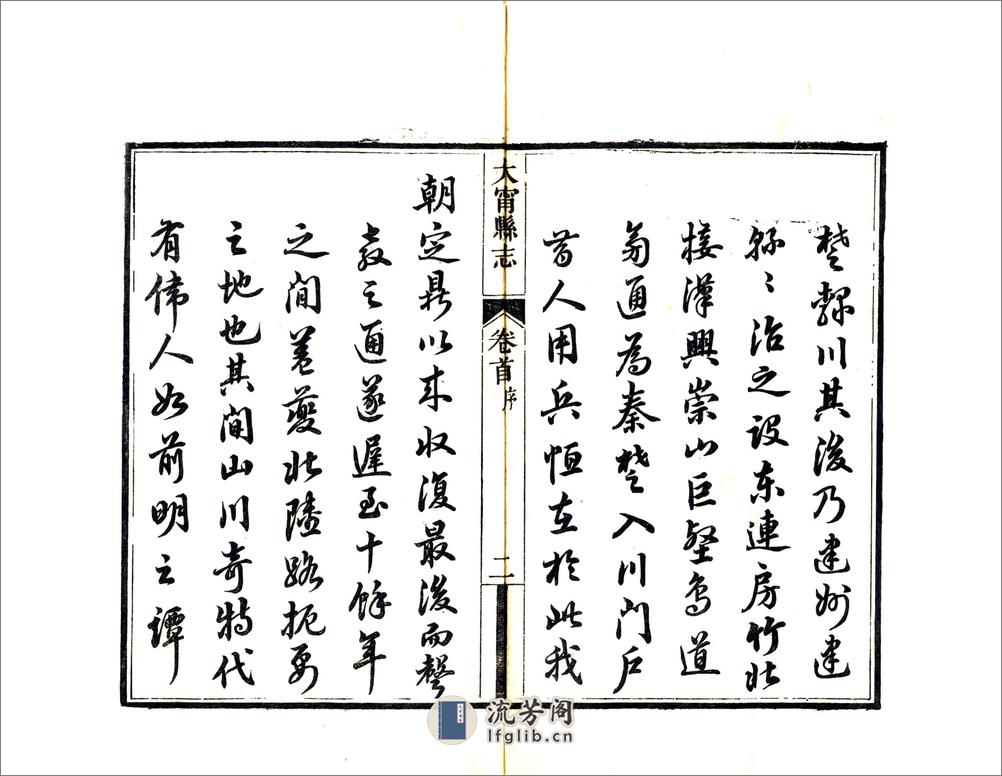 楚隸川其後乃建州建
縣〻治之設東連房竹北
接漢興崇山巨壑鳥道
旁通為秦楚入川門戶
昔人用兵恒在於此我
大甯縣志 卷首 序 二
朝定鼎以来收復最後而聲
教之通遂遲至十餘年
之間蓋夔北陸路扼要
之地也其間山川奇特代
有偉人如前明之譚
流芳阁
lfglib.cn